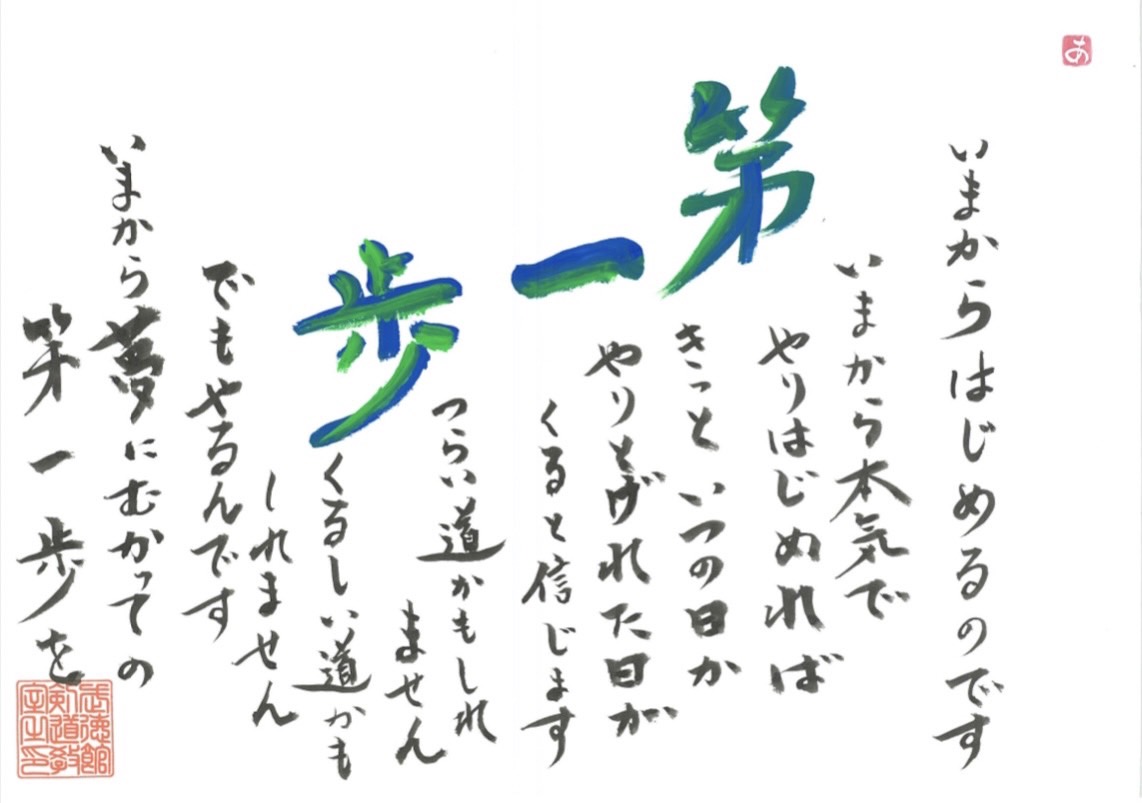 あ
いまからはじめるのです
いまから本気で
やりはじめれば
きっといつの日か
やりとげれた日が
くると信じます
第一歩
つらい道かもしれ
ません
くるしい道かも
しれません
でもやるんです
いまから夢にむかっての
第一歩を
武徳館
剣道教
室之印